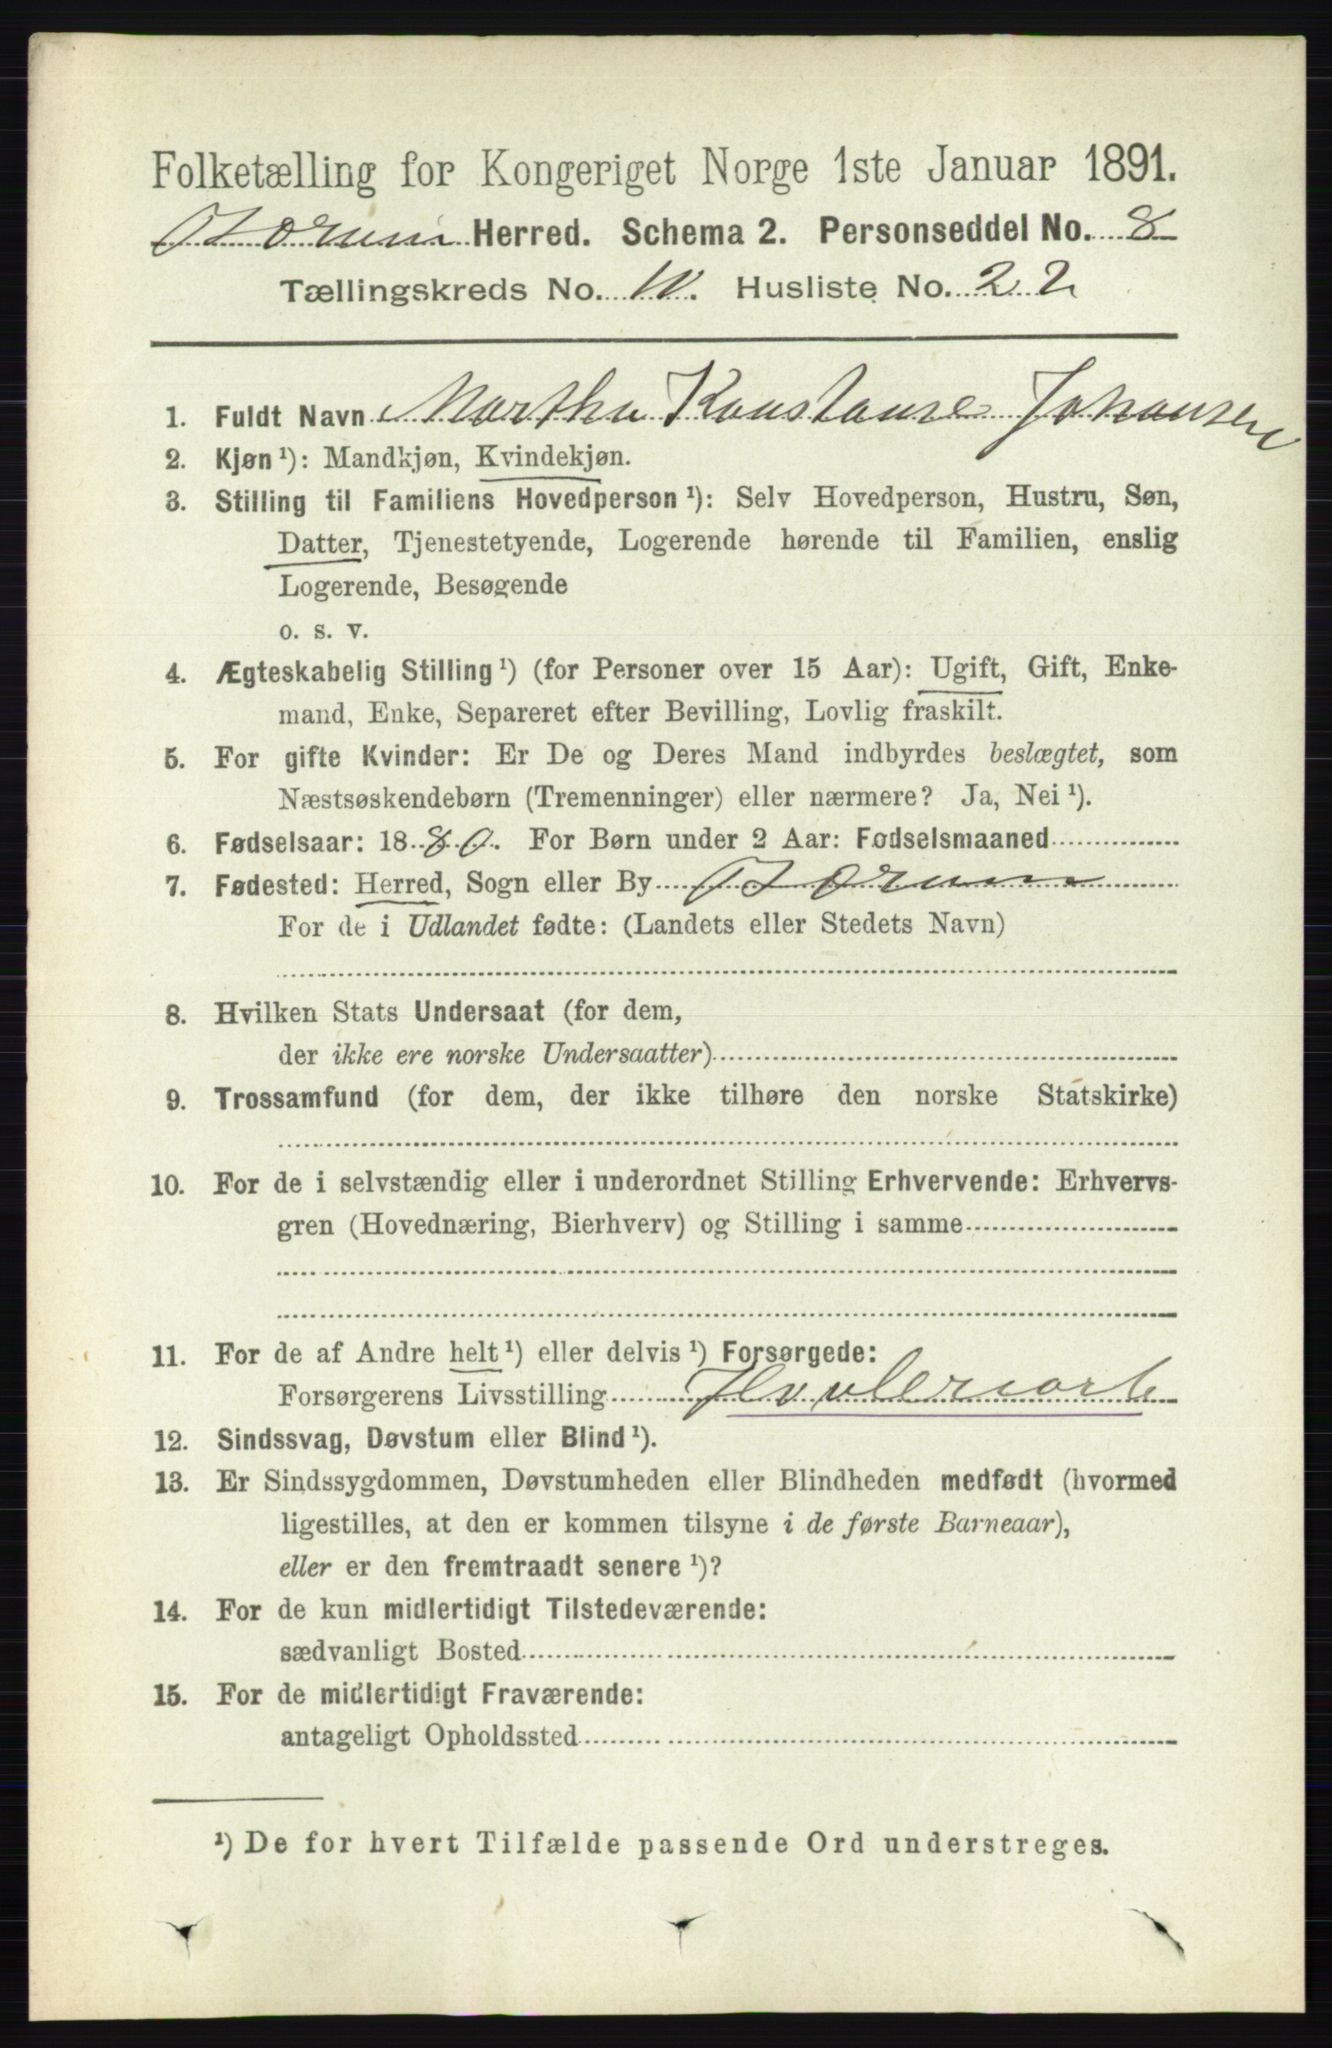 Folketælling for Kongeriget Norge 1ste Januar 1891.
Borum Herred. Schema 2. Personseddel No. 8
Tællingskreds No. 10. Husliste No. 22
1. Fuldt Navn Martha Konstanse Johansen
2. Kjøn ¹): Mandkjøn, Kvindekjøn.
3. Stilling til Familiens Hovedperson ¹): Selv Hovedperson, Hustru, Søn,
Datter, Tjenestetyende, Logerende hørende til Familien, enslig
Logerende, Besøgende
o. s. v.
4. Ægteskabelig Stilling ¹) (for Personer over 15 Aar): Ugift, Gift, Enke-
mand, Enke, Separeret efter Bevilling, Lovlig fraskilt.
5. For gifte Kvinder: Er De og Deres Mand indbyrdes beslægtet, som
Næstsøskendebørn (Tremenninger) eller nærmere? Ja, Nei ¹).
6. Fødselsaar: 1880. For Børn under 2 Aar: Fødselsmaaned
7. Fødested: Herred, Sogn eller By Borum
For de i Udlandet fødte: (Landets eller Stedets Navn)
8. Hvilken Stats Undersaat (for dem,
der ikke ere norske Undersaatter)
9. Trossamfund (for dem, der ikke tilhøre den norske Statskirke)
10. For de i selvstændig eller i underordnet Stilling Erhvervende: Erhvervs-
gren (Hovednæring, Bierhverv) og Stilling i samme
11. For de af Andre helt ¹) eller delvis ¹) Forsørgede:
Forsørgerens Livsstilling
12. Sindssvag, Døvstum eller Blind ¹).
13. Er Sindssygdommen, Døvstumheden eller Blindheden medfødt (hvormed
ligestilles, at den er kommen tilsyne i de første Barneaar),
eller er den fremtraadt senere ¹)?
14. For de kun midlertidigt Tilstedeværende:
sædvanligt Bosted
15. For de midlertidigt Fraværende:
antageligt Opholdssted
¹) De for hvert Tilfælde passende Ord understreges.